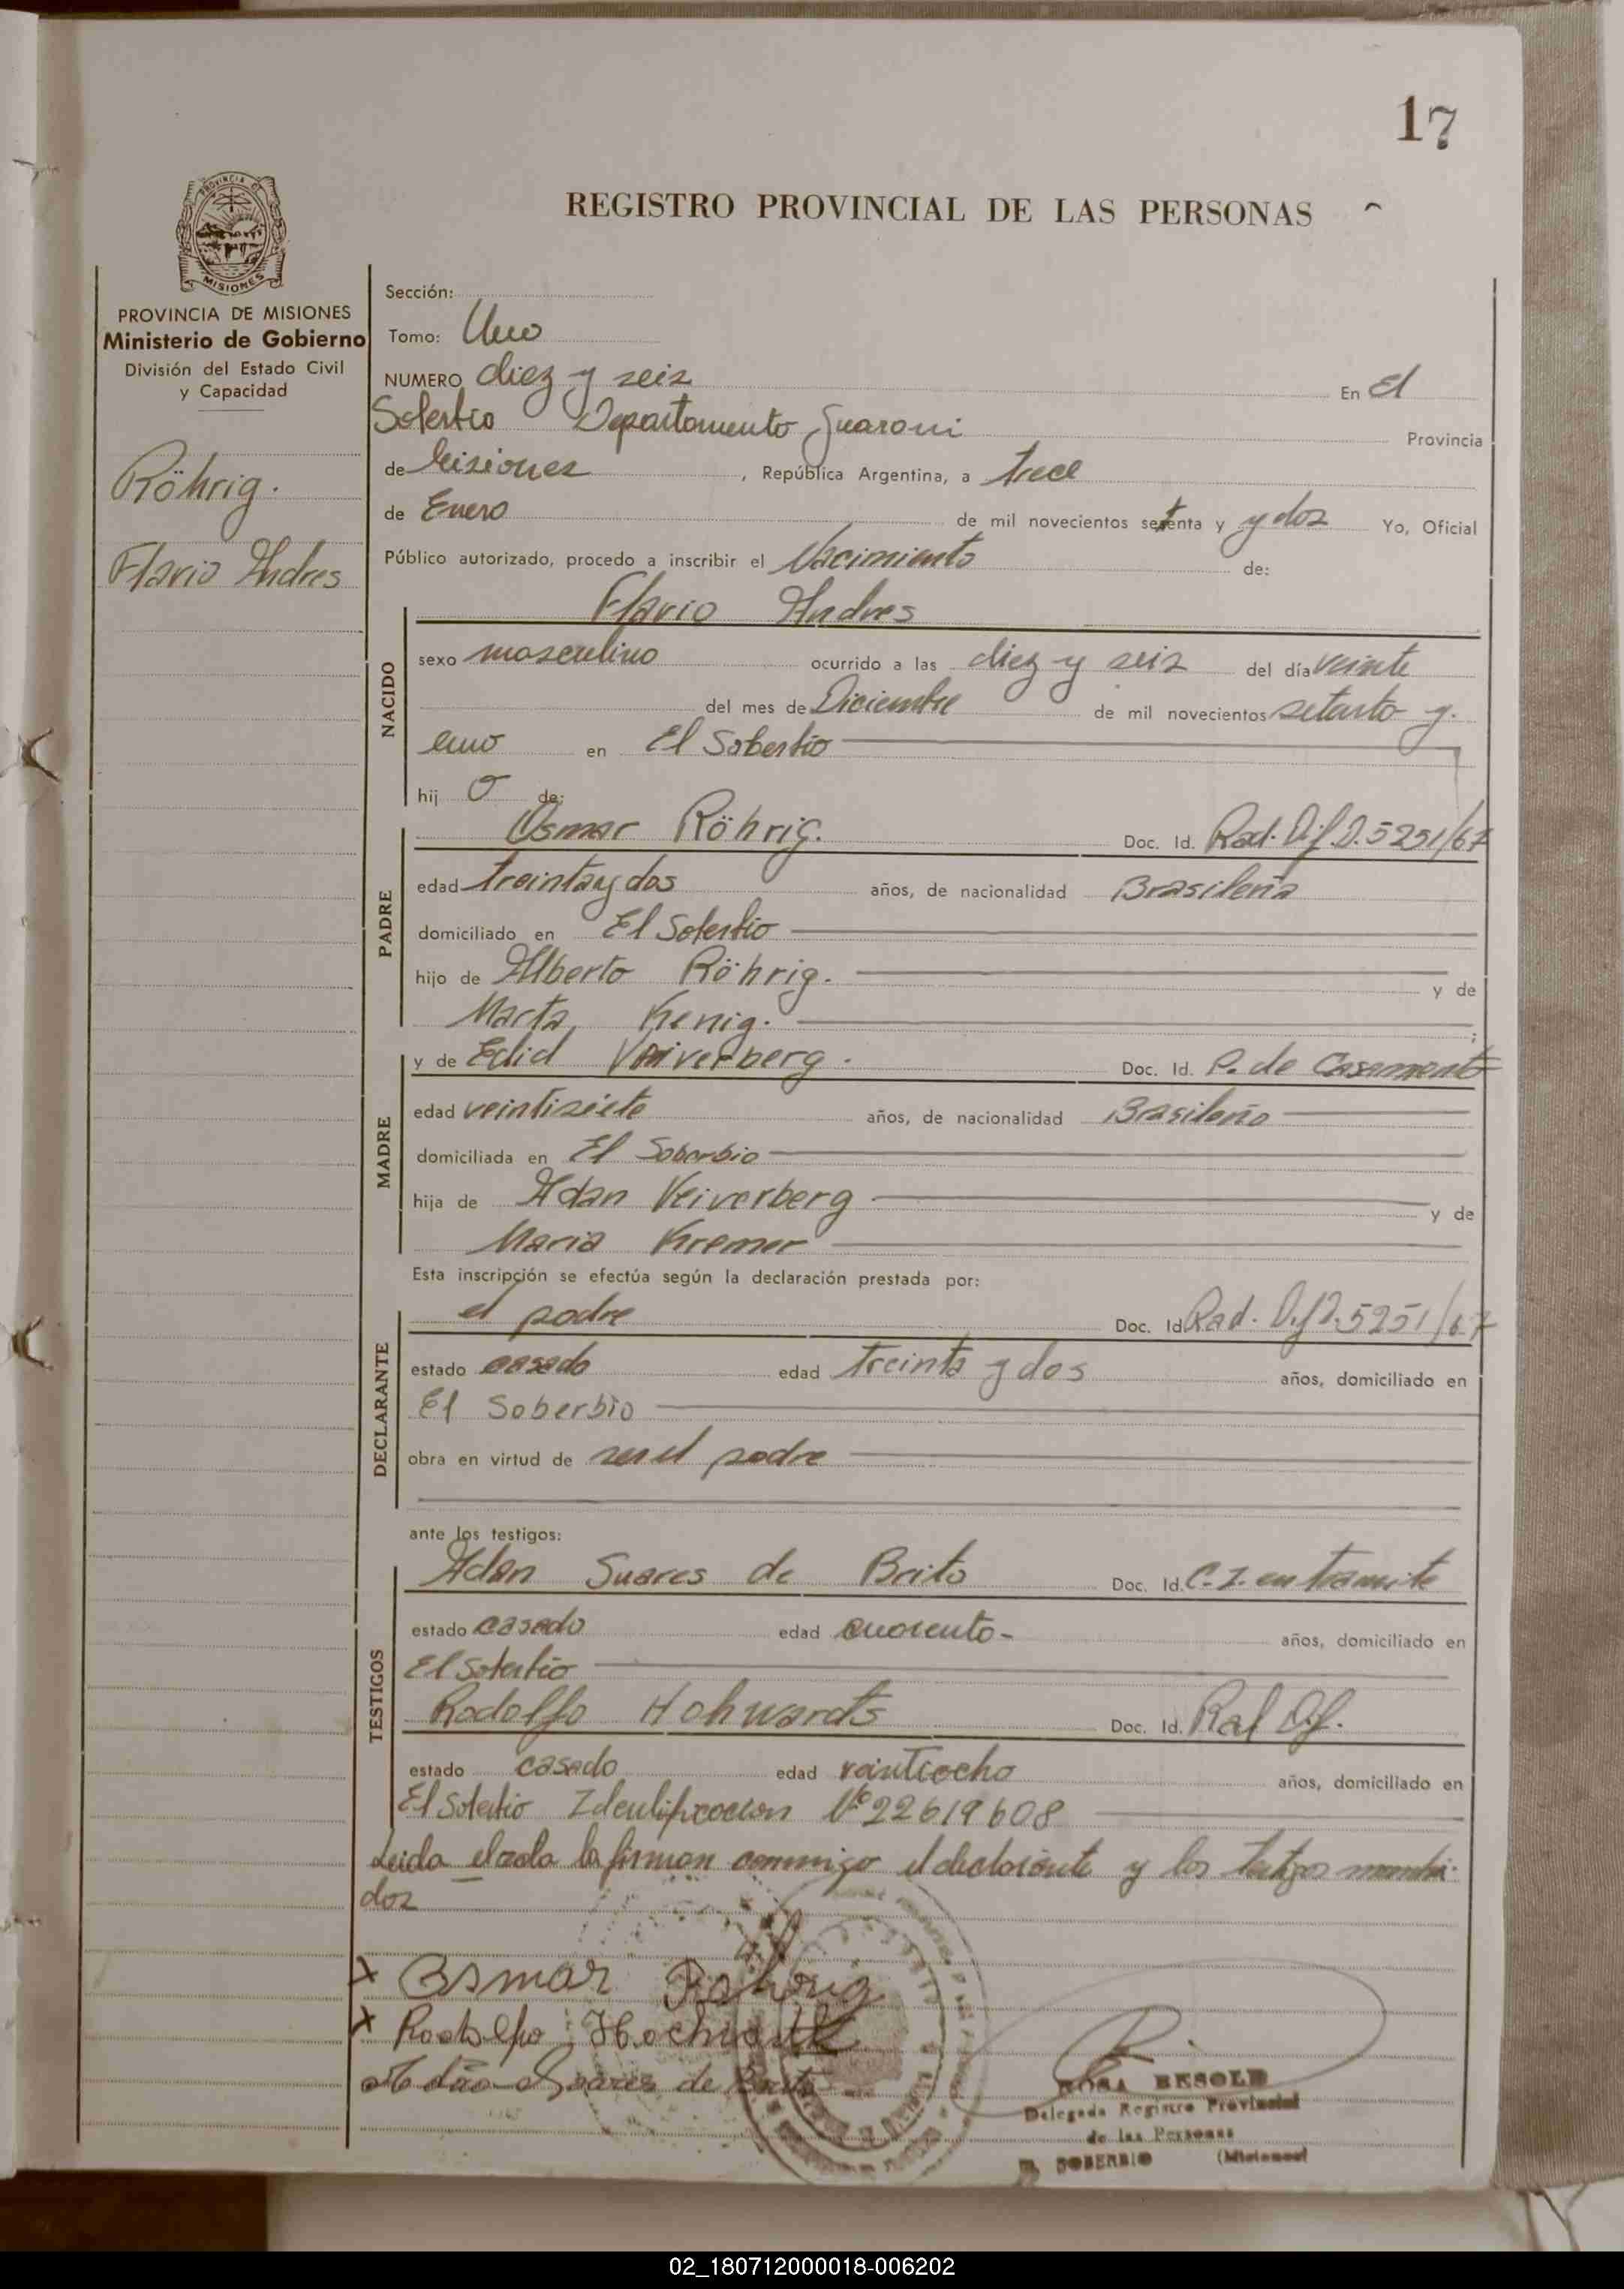 17
REGISTRO PROVINCIAL DE LAS PERSONAS
PROVINCIA DE MISIONES
PROVINCIA DE MISIONES
Ministerio de Gobierno
División del Estado Civil
y Capacidad
Röhrig.
Flavio Andres
Sección:
Tomo: Uno
NUMERO diez y seis En El
Soberbio Departamento Guarani Provincia
de Misiones, República Argentina, a trece
de Enero de mil novecientos setenta y y dos Yo, Oficial
Público autorizado, procedo a inscribir el Nacimiento de:
NACIDO
Flavio Andres
sexo masculino ocurrido a las diez y seis del día veinte
del mes de Diciembre de mil novecientos setenta y
uno en El Soberbio
hij o de:
PADRE
Osmar Röhrig. Doc. Id. Rad. Dif. D. 5251/67
edad treinta y dos años, de nacionalidad Brasileña
domiciliado en El Soberbio
hijo de Alberto Röhrig. y de
Marta Kenig. ;
MADRE
y de Edid Veiverberg. Doc. Id. P. de Casamento
edad veintisiete años, de nacionalidad Brasileña
domiciliada en El Soberbio
hija de Adan Veiverberg y de
Maria Kremer
Esta inscripción se efectúa según la declaración prestada por:
DECLARANTE
el padre Doc. Id. Rad. Dif D. 5251/67
estado casado edad treinta y dos años, domiciliado en
El Soberbio
obra en virtud de ser el padre
ante los testigos:
TESTIGOS
Adan Suares de Brito Doc. Id. C. I. en tramite
estado casado edad cuarenta- años, domiciliado en
El Soberbio
Rodolfo Hohwarts Doc. Id. Rad Dif.
estado casado edad veintiocho años, domiciliado en
El Soberbio Identificacion Nº 22619608
Leida el acta la firman conmigo el declarante y los testigos menci-
dos
x Osmar Rohrig
x Rodolfo Hochwartt
Adão Soares de Brito
ROSA BESOLD
Delegada Registro Provincial
de las Personas
EL SOBERBIO (Misiones)
02_180712000018-006202